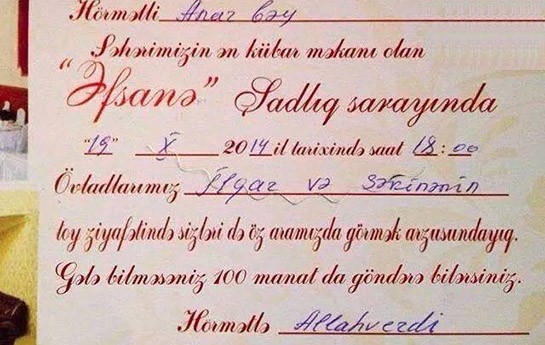 Hörmətli Anar bəy
Şəhərimizin ən kübar məkanı olan
"Əfsanə" Şadlıq sarayında
"19" X 2014 il tarixində saat 18:00
Övladlarımız İlqar və Səkinənin
toy ziyafətində sizləri də öz aramızda görmək arzusundayıq.
Gələ bilməsəniz 100 manat da göndərə bilərsiniz.
Hörmətlə Allahverdi